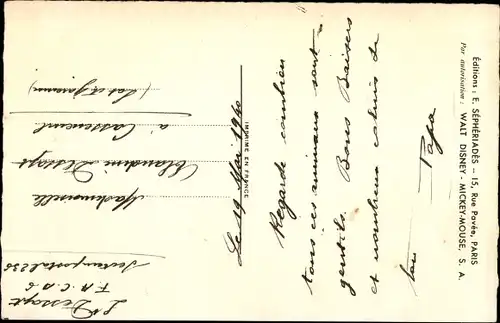 Éditions : E. SÉPHÉRIADÈS — 15, Rue Pavée, PARIS
Par autorisation : WALT DISNEY - MICKEY-MOUSE, S. A.
Le 19 Mai 1940
Regarde combien
tous ces animaux sont
gentils. Bons Baisers
et nombreux calins de
ton
Papa
IMPRIMÉ EN FRANCE
Mademoiselle
Claudine Dessapt
à Casseneuil
(Lot et Garonne)
Dessapt
Secteur postal 236